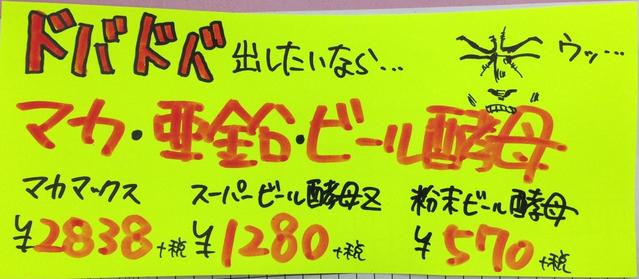 ドバドバ出したいなら…
ウッ…
マカ・亜鉛・ビール酵母
マカマックス スーパービール酵母Z 粉末ビール酵母
¥2838+税 ¥1280+税 ¥570+税